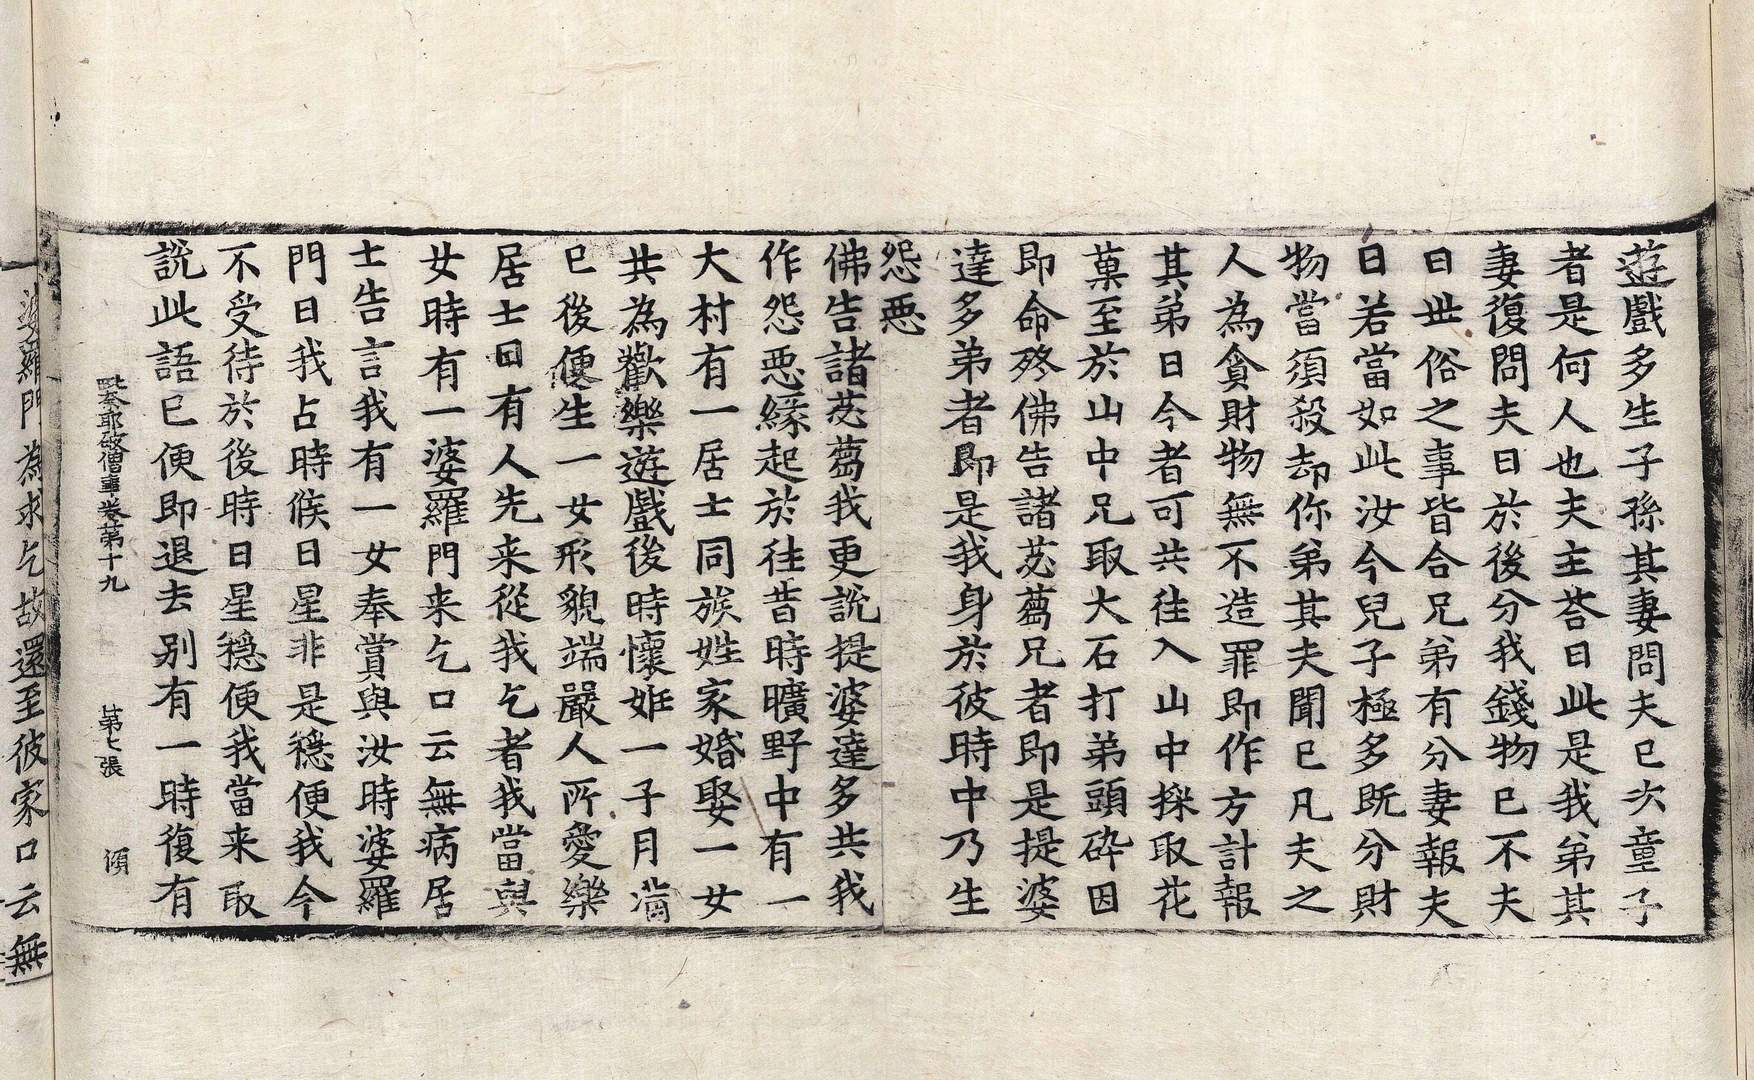 遊戲多生子孫其妻問夫巳次童子
者是何人也夫主荅曰此是我弟其
妻復問夫曰於後分我錢物巳不夫
曰世俗之事皆合兄弟有分妻報夫
曰若當如此汝今兒子極多既分財
物當須殺却你弟其夫聞巳凡夫之
人為貪財物無不造罪即作方計報
其弟曰今者可共往入山中採取花
菓至於山中兄取大石打弟頭碎因
即命終佛告諸苾蒭兄者即是提婆
達多弟者即是我身於彼時中乃生
怨惡
佛告諸苾蒭我更說提婆達多共我
作怨惡緣起於往昔時曠野中有一
大村有一居士同族姓家婚娶一女
共為歡樂遊戲後時懷姙一子月滿
巳後便生一女形貌端嚴人所愛樂
居士曰有人先来從我乞者我當與
女時有一婆羅門来乞口云無病居
士告言我有一女奉賞與汝時婆羅
門曰我占時候日星非是穩便我今
不受待於後時日星穩便我當来取
說此語巳便即退去别有一時復有
毗奈耶破僧事卷第十九 第七張 傾
婆羅門為求乞故還至彼家口云無